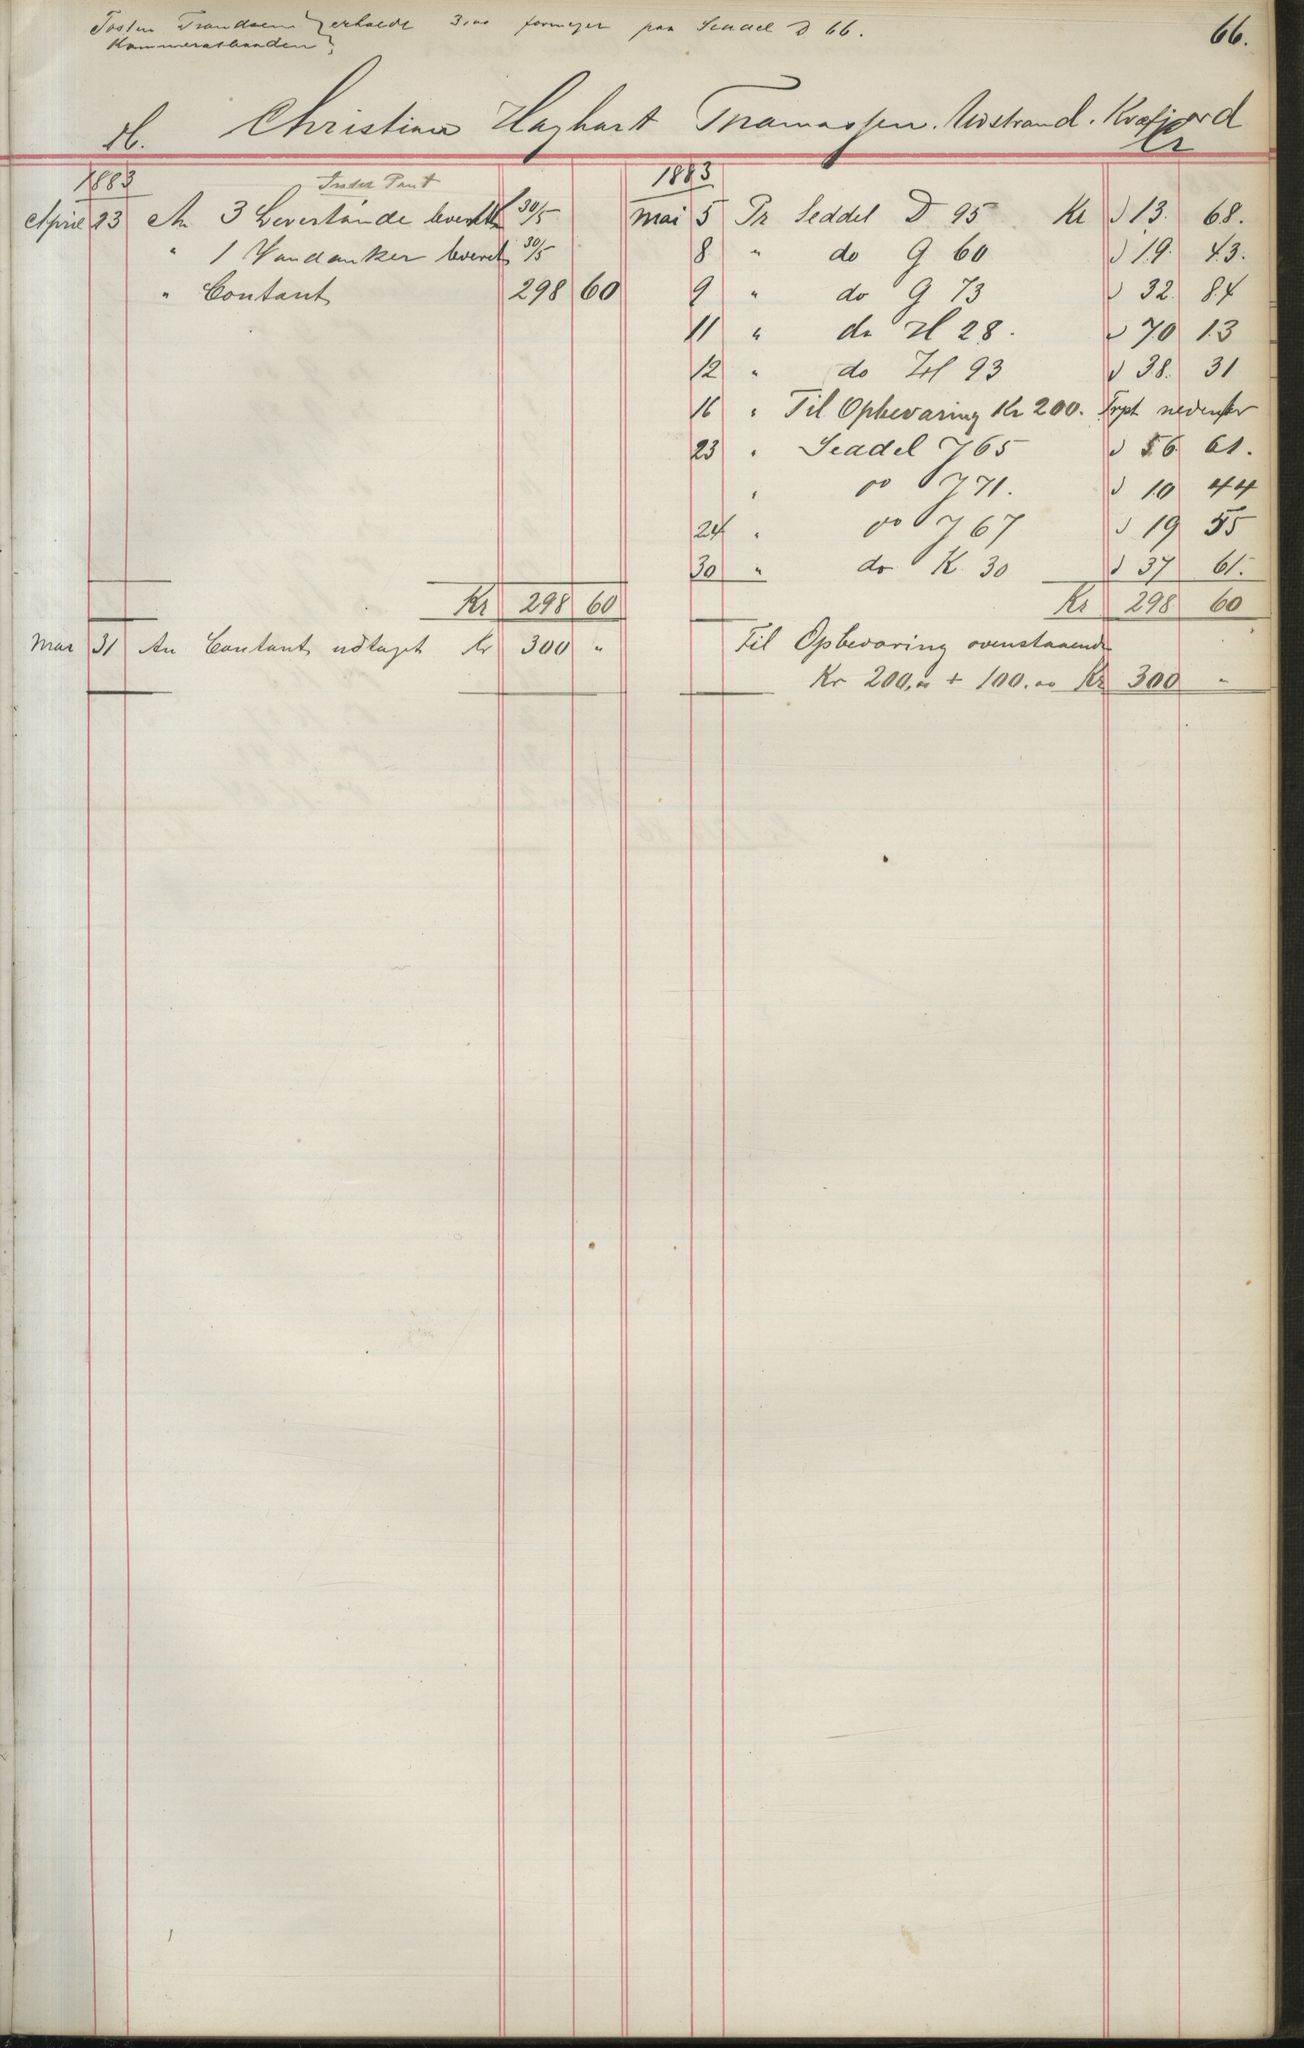 Tosten Trondsen } erholdt 3,00 formeget paa Seddel D 66.
Kammeratbaaden
66.
Christian Haghart Thomassen. Kvæfjord
Db. Cr
1883 Under Pant 1883
April 23 An 3 Leverstande leveret 30/5 Mai 5 Pr Seddel D 95 Kr 13. 68.
" 1 Vandanker leveret 30/5 8 " do G 60 " 19. 43.
" Contant 298 60 9 " do G 73 " 32. 84
11 " do H 28. " 70 13
12 " do H 93 " 38. 31
16 " Til Opbevaring Kr 200. nedenfor
23 " Seddel J 65 " 56 61.
" do J 71. " 10 44
24 " do J 67 " 19 55
30 " do K 30 " 37 61.
Kr 298 60 Kr 298 60
Mai 31 An Contant udtaget Kr 300 " Til Opbevaring ovenstaaende
Kr 200,00 + 100.00 Kr 300 "